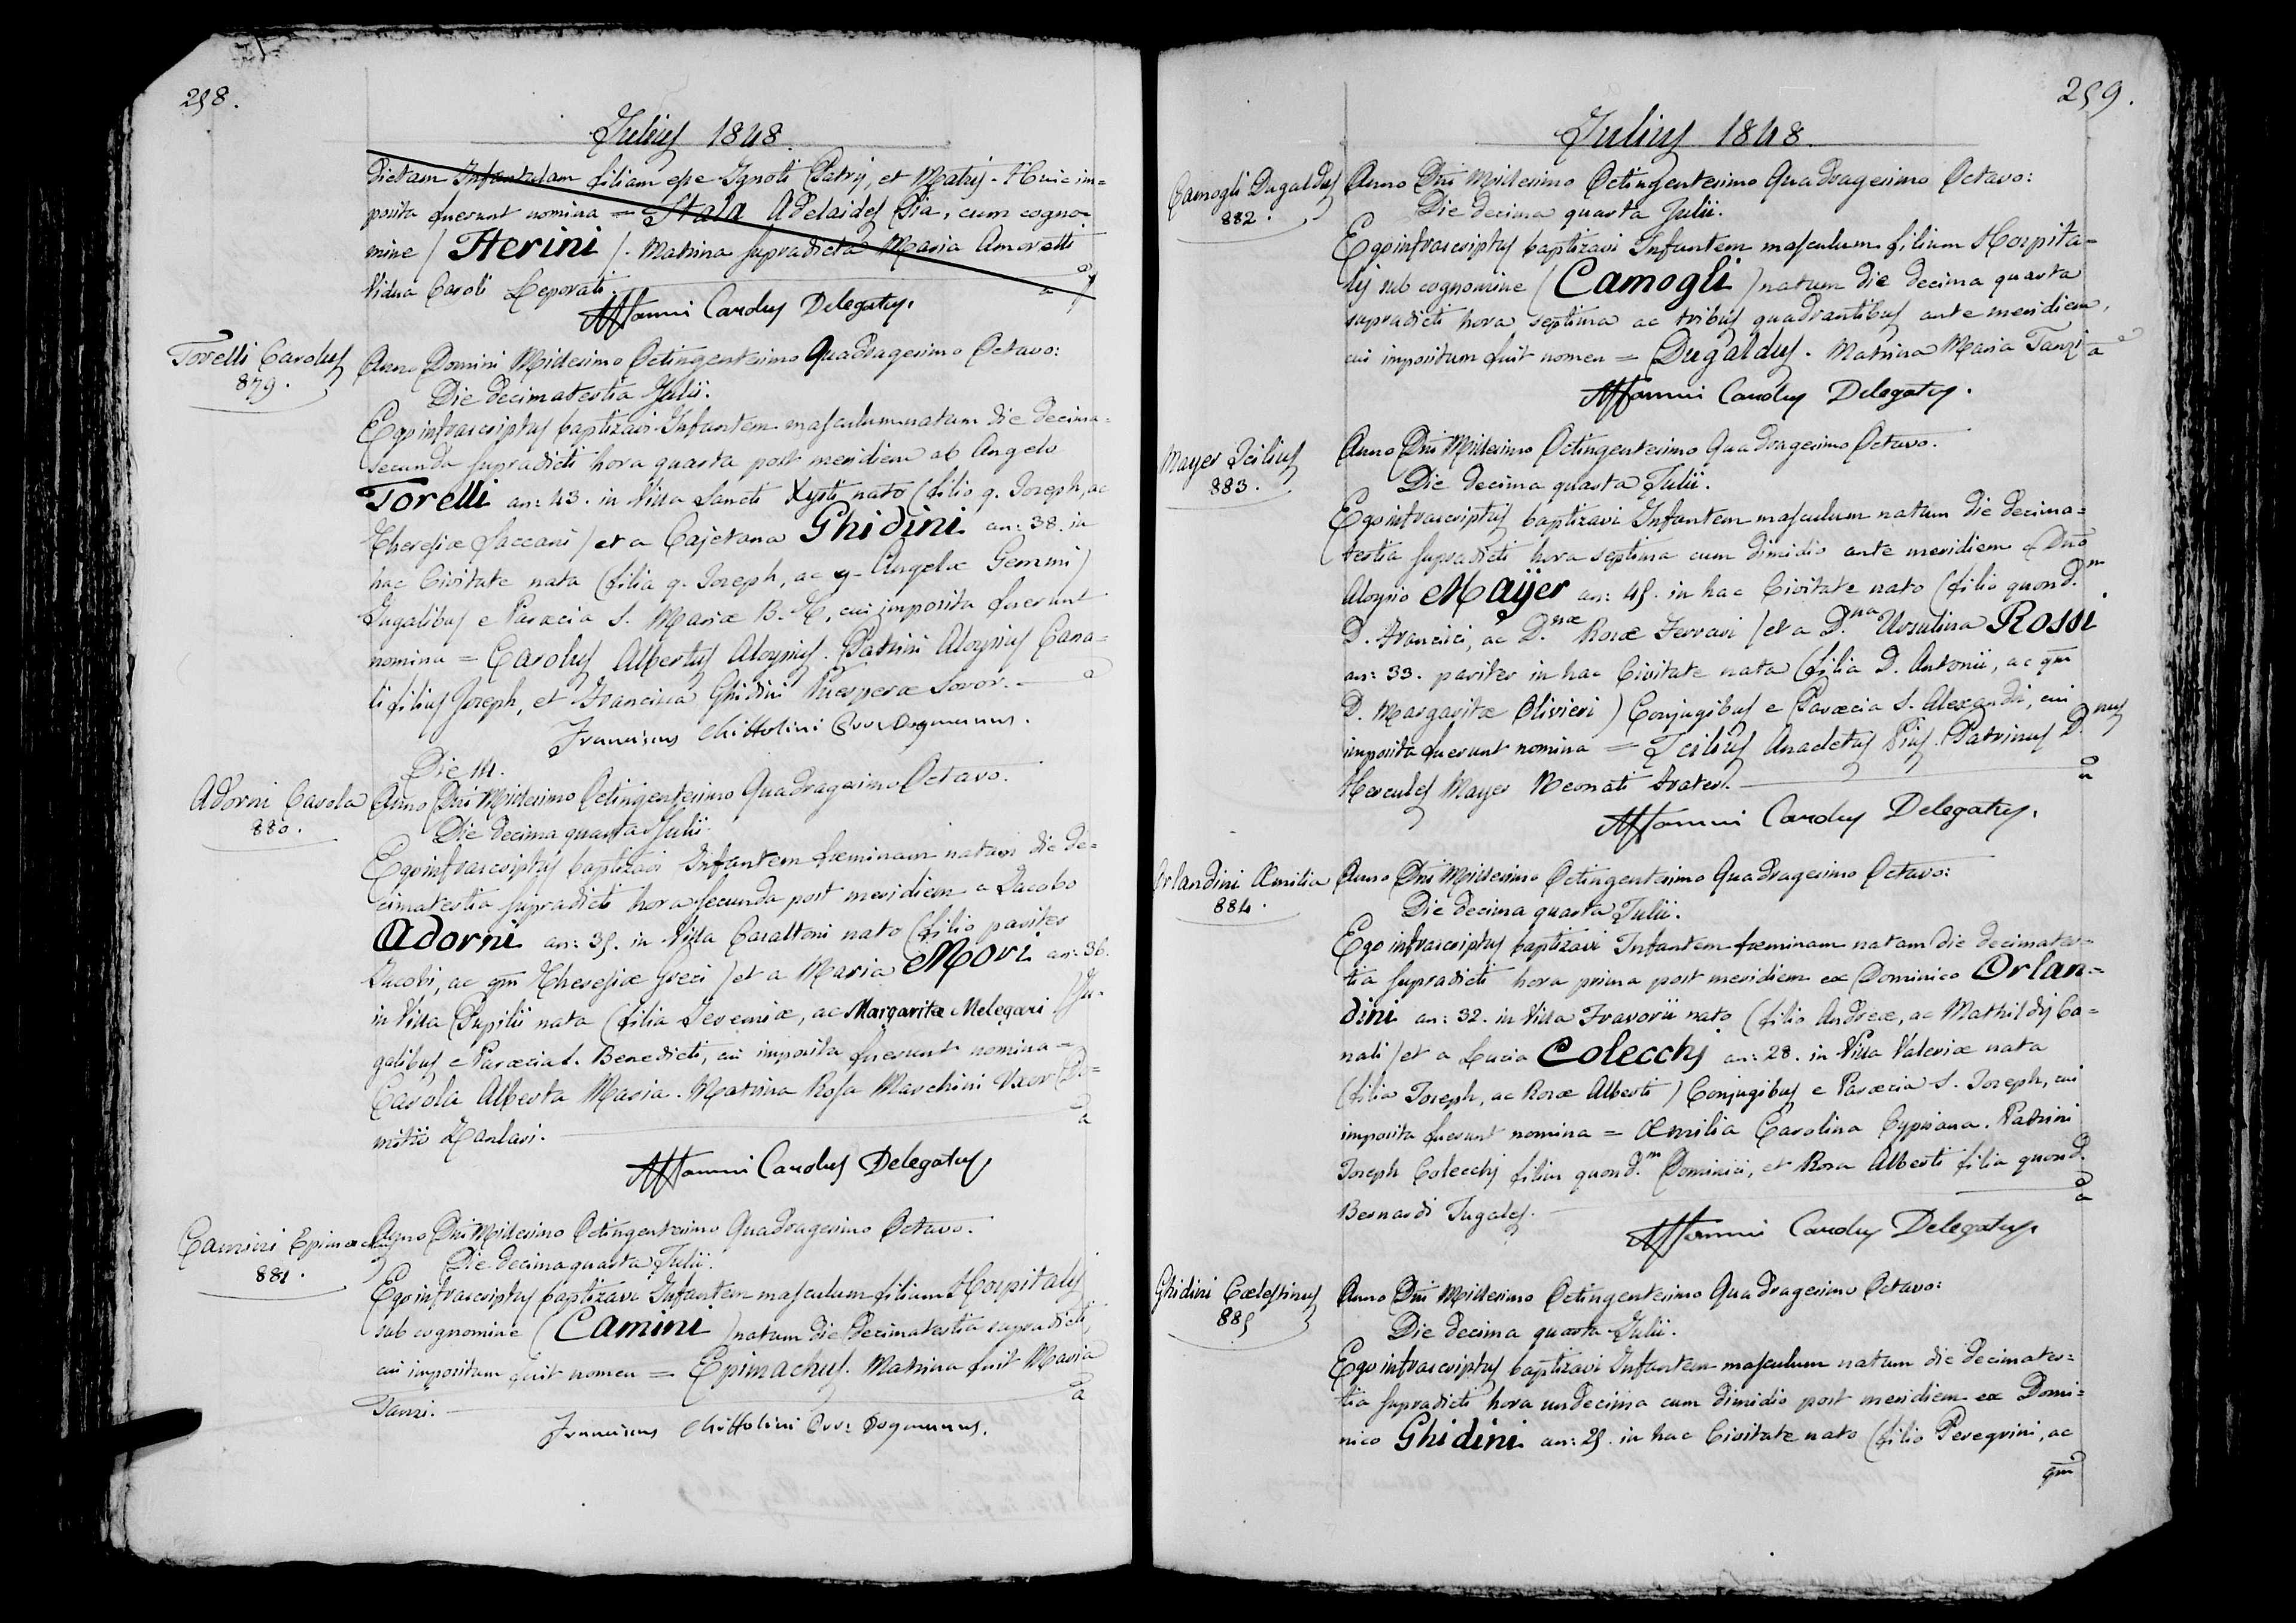 298.
Julius 1848.
dictam Infantulam filiam esse Ignoti Patris, et Matris. Huic im=
posita fuerunt nomina = Itala Adelaides Pia, cum cogno=
mine / Iterini /. Matrina supradicta Maria Amoretti
Vidua Caroli Leporati.
Affanni Carolus Delegatus.
Torelli Carolus
879.
Anno Domini Millesimo Octingentesimo Quadragesimo Octavo:
Die decimatertia Julii.
Ego infrascriptus baptizavi Infantem masculum natum die decima=
secunda supradicti hora quarta post meridiem ab Angelo
Torelli an: 43. in Villa Sancti Xysti nato (filio q. Joseph, ac
Theresiæ Saccani) et a Cajetana Ghidini an: 38. in
hac Civitate nata (filia q. Joseph, ac q. Angelæ Gemini)
Jugalibus e Parœcia S. Mariæ B. V., cui imposita fuerunt
nomina = Carolus Albertus Aloysius. Patrini Aloysius Cana=
li filius Joseph, et Francisca Ghidini Puerperæ Soror.
Franciscus Chittolini Cur: Dogmanus.
Die 14.
Adorni Carola
880.
Anno Dñi Millesimo Octingentesimo Quadragesimo Octavo.
Die decima quarta Julii.
Ego infrascriptus baptizavi Infantem fœminam natam die de=
cimatertia supradicti hora secunda post meridiem a Jacobo
Adorni an: 35. in Villa Casaltoni nato (filio pariter
Jacobi, ac qm Theresiæ Greci) et a Maria Mori an: 36.
in Villa Pupilii nata (filia Jeremiæ, ac Margaritæ Melegari) Ju=
galibus e Parœcia S. Benedicti, cui imposita fuerunt nomina =
Carola Alberta Maria. Matrina Rosa Marchini Uxor Do=
mitii Zanlari.
Affanni Carolus Delegatus
Camini Epimachus
881.
Anno Dñi Millesimo Octingentesimo Quadragesimo Octavo.
Die decima quarta Julii.
Ego infrascriptus baptizavi Infantem masculum filium Hospitalis
sub cognomine (Camini) natum die decimatertia supradicti
cui impositum fuit nomen = Epimachus. Matrina fuit Maria
Tanzi.
Franciscus Chittolini Cur: Dogmanus.
259.
Julius 1848.
Camogli Dugaldus
882.
Anno Dñi Millesimo Octingentesimo Quadragesimo Octavo:
Die decima quarta Julii.
Ego infrascriptus baptizavi Infantem masculum filium Hospita=
lis sub cognomine (Camogli) natum die decima quarta
supradicti hora septima ac tribus quadrantibus ante meridiem,
cui impositum fuit nomen = Dugaldus. Matrina Maria Tanzi
Affanni Carolus Delegatus.
Mayer Icilius
883.
Anno Dñi Millesimo Octingentesimo Quadragesimo Octavo.
Die decima quarta Julii.
Ego infrascriptus baptizavi Infantem masculum natum die decima=
tertia supradicti hora septima cum dimidio ante meridiem a Dño
Aloysio Maÿer an: 45. in hac Civitate nato (filio quond.m
D. Francisci, ac D.næ Rosæ Ferrari) et a D.na Ursulina Rossi
an: 33. pariter in hac Civitate nata (filia D. Antonii, ac qm
D. Margaritæ Olivieri) Conjugibus e Parœcia S. Alexandri, cui
imposita fuerunt nomina = Icilius Anacletus Pius. Patrinus D.nus
Hercules Mayer Neonati Frater.
Affanni Carolus Delegatus.
Orlandini Æmilia
884.
Anno Dñi Millesimo Octingentesimo Quadragesimo Octavo:
Die decima quarta Julii.
Ego infrascriptus baptizavi Infantem fœminam natam die decimater=
tia supradicti hora prima post meridiem ex Dominico Orlan=
dini an: 32. in Villa Fravorii nato (filio Andreæ, ac Mathildis Ca=
nali) et a Lucia Colecchj an: 28. in Villa Valeriæ nata
(filia Joseph, ac Rosæ Alberti) Conjugibus e Parœcia S. Joseph, cui
imposita fuerunt nomina = Æmilia Carolina Cypriana. Patrini
Joseph Colecchj filius quond.m Dominici, et Rosa Alberti filia quond.
Bernardi Jugales.
Affanni Carolus Delegatus
Ghidini Cœlestinus
885
Anno Dñi Millesimo Octingentesimo Quadragesimo Octavo:
Die decima quarta Julii.
Ego infrascriptus baptizavi Infantem masculum natum die decimater=
tia supradicti hora undecima cum dimidio post meridiem ex Domi=
nico Ghidini an: 25. in hac Civitate nato (filio Peregrini, ac
qm